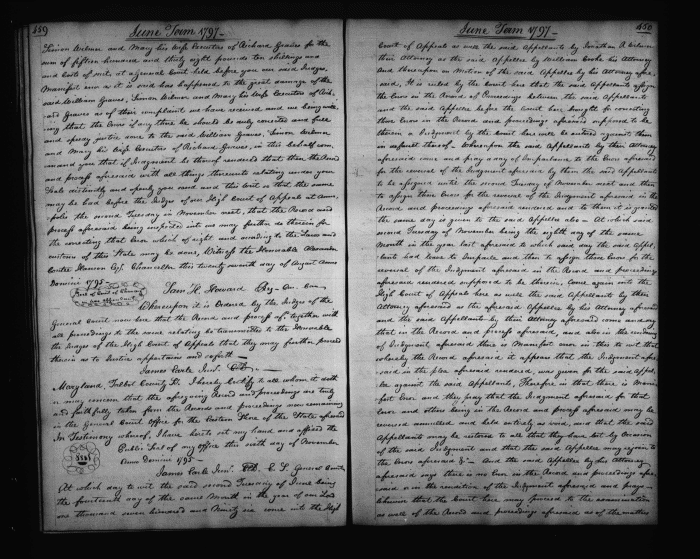 459
June Term 1797
Simon Wilmer and Mary his wife Executors of Richard Graves for the
sum of fifteen hundred and thirty eight pounds ten shillings and
and Costs of suit, at a General Court held before you our said Judges,
Manifest error as it is said has happened to the great damage of the
said William Graves, Simon Wilmer and Mary his wife Executors of Rich
ard Graves as of their complaint we have received and we being will
ing that the Error if any there be should be duly corrected and full
and speedy justice done to the said William Graves, Simon Wilmer
and Mary his wife Executors of Richard Graves, in this behalf com
mand you that if Judgment be thereof rendered that then the Record
and process aforesaid with all things thereunto relating under your
Seals distinctly and openly you send and this Writ so that the same
may be had before the Judges of our High Court of Appeals at Anna
polis the second Tuesday in November next, that the Record and
process aforesaid being inspected into we may further do therein for
the correcting that Error which of right and according to the Laws and
customs of this State may be done, Witness the Honorable Alexander
Contee Hanson Esq. Chancellor this twenty seventh day of August Anno
Domini 1795
Seal of Court of Chancery
Sam H. Howard Reg. Cur. Can.
Whereupon it is ordered by the Judges of the
General Court now here that the Record and process &c. together with
all proceedings to the same relating be transmitted to the Honorable
the Judges of the High Court of Appeals that they may further proceed
therein as to Justice appertain and so forth
James Earle Junr. Clk.
Maryland, Talbot County Sc. I hereby certify to all whom it doth
or may concern that the aforegoing Record and proceedings are truly
and faithfully taken from the Records and proceedings now remaining
in the General Court office for the Eastern Shore of the State aforesaid
In Testimony whereof, I have hereto set my hand and affixed the
Public Seal of my office this sixth day of November
Anno Domini 1795
Seal
James Earle Junr. Clk. E. S. General Court
At which day to wit the said second Tuesday of June being
the fourteenth day of the same Month in the year of our Lord
one thousand seven hundred and Ninety six come into the High
450
June Term 1797
Court of Appeals as well the said Appellants by Jonathan R. Wilmer
their Attorney as the said Appellee by William Cooke his Attorney
And thereupon on Motion of the said Appellee by his Attorney afore
said, It is ruled by the Court here that the said Appellants assign
the Error in the Record of Proceedings between the said Appellants
and the said Appellee before the Court here brought for correcting
those Errors in the Record and proceedings aforesaid supposed to be
therein a Judgment by the Court here will be entered against them
in default thereof. Whereupon the said Appellants by their Attorney
aforesaid came and pray a day of Imparlance to the Errors aforesaid
for the reversal of the Judgment aforesaid by them the said Appellants
to be assigned until the second Tuesday of November next and then
to assign those Errors for the reversal of the Judgment aforesaid in the
Record and proceedings aforesaid rendered and to them it is granted
the same day is given to the said Appellee also - At which said
second Tuesday of November being the eighth day of the same
Month in the year last aforesaid to which said day the said Appel
lants had leave to Imparle and then to assign those Errors for the
reversal of the Judgment aforesaid in the Record and proceedings
aforesaid rendered supposed to be therein, Come again into the
High Court of Appeals here as well the said Appellants by their
Attorney aforesaid as the aforesaid Appellee by his Attorney aforesaid
and the said Appellants by their Attorney aforesaid come and say
that in the Record and process aforesaid, and also in the rendering
of Judgment aforesaid there is Manifest error in this to wit that
whereby the Record aforesaid it appears that the Judgment afore
said in the plea aforesaid rendered, was given for the said Appel
lee against the said Appellants, Therefore in that there is Mani
fest Error and they pray that the Judgment aforesaid for that
error and others being in the Record and process aforesaid may be
reversed annulled and held entirely as void, and that the said
Appellants may be restored to all that they have lost by occasion
of the said Judgment and that the said Appellee may rejoin to
the Errors aforesaid &c. And the said Appellee by his Attorney
aforesaid says there is no Error in the Record and proceedings afore
said or in the rendition of the Judgment aforesaid and prays
likewise that the Court here may proceed to the examination
as well of the Record and proceedings aforesaid as of the matters